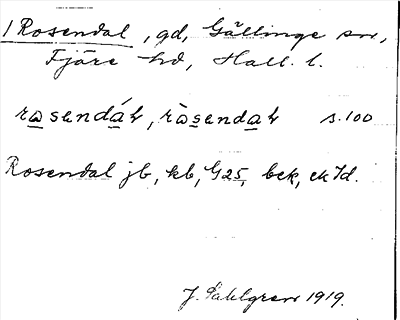 1 Rosendal, gd, Gällinge sn,
Fjäre hd, Hall. l.
rasendát, ràsendat s. 100
Rosendal jb, kb, G25, bek, ek Id.
J. Sahlgren 1919.